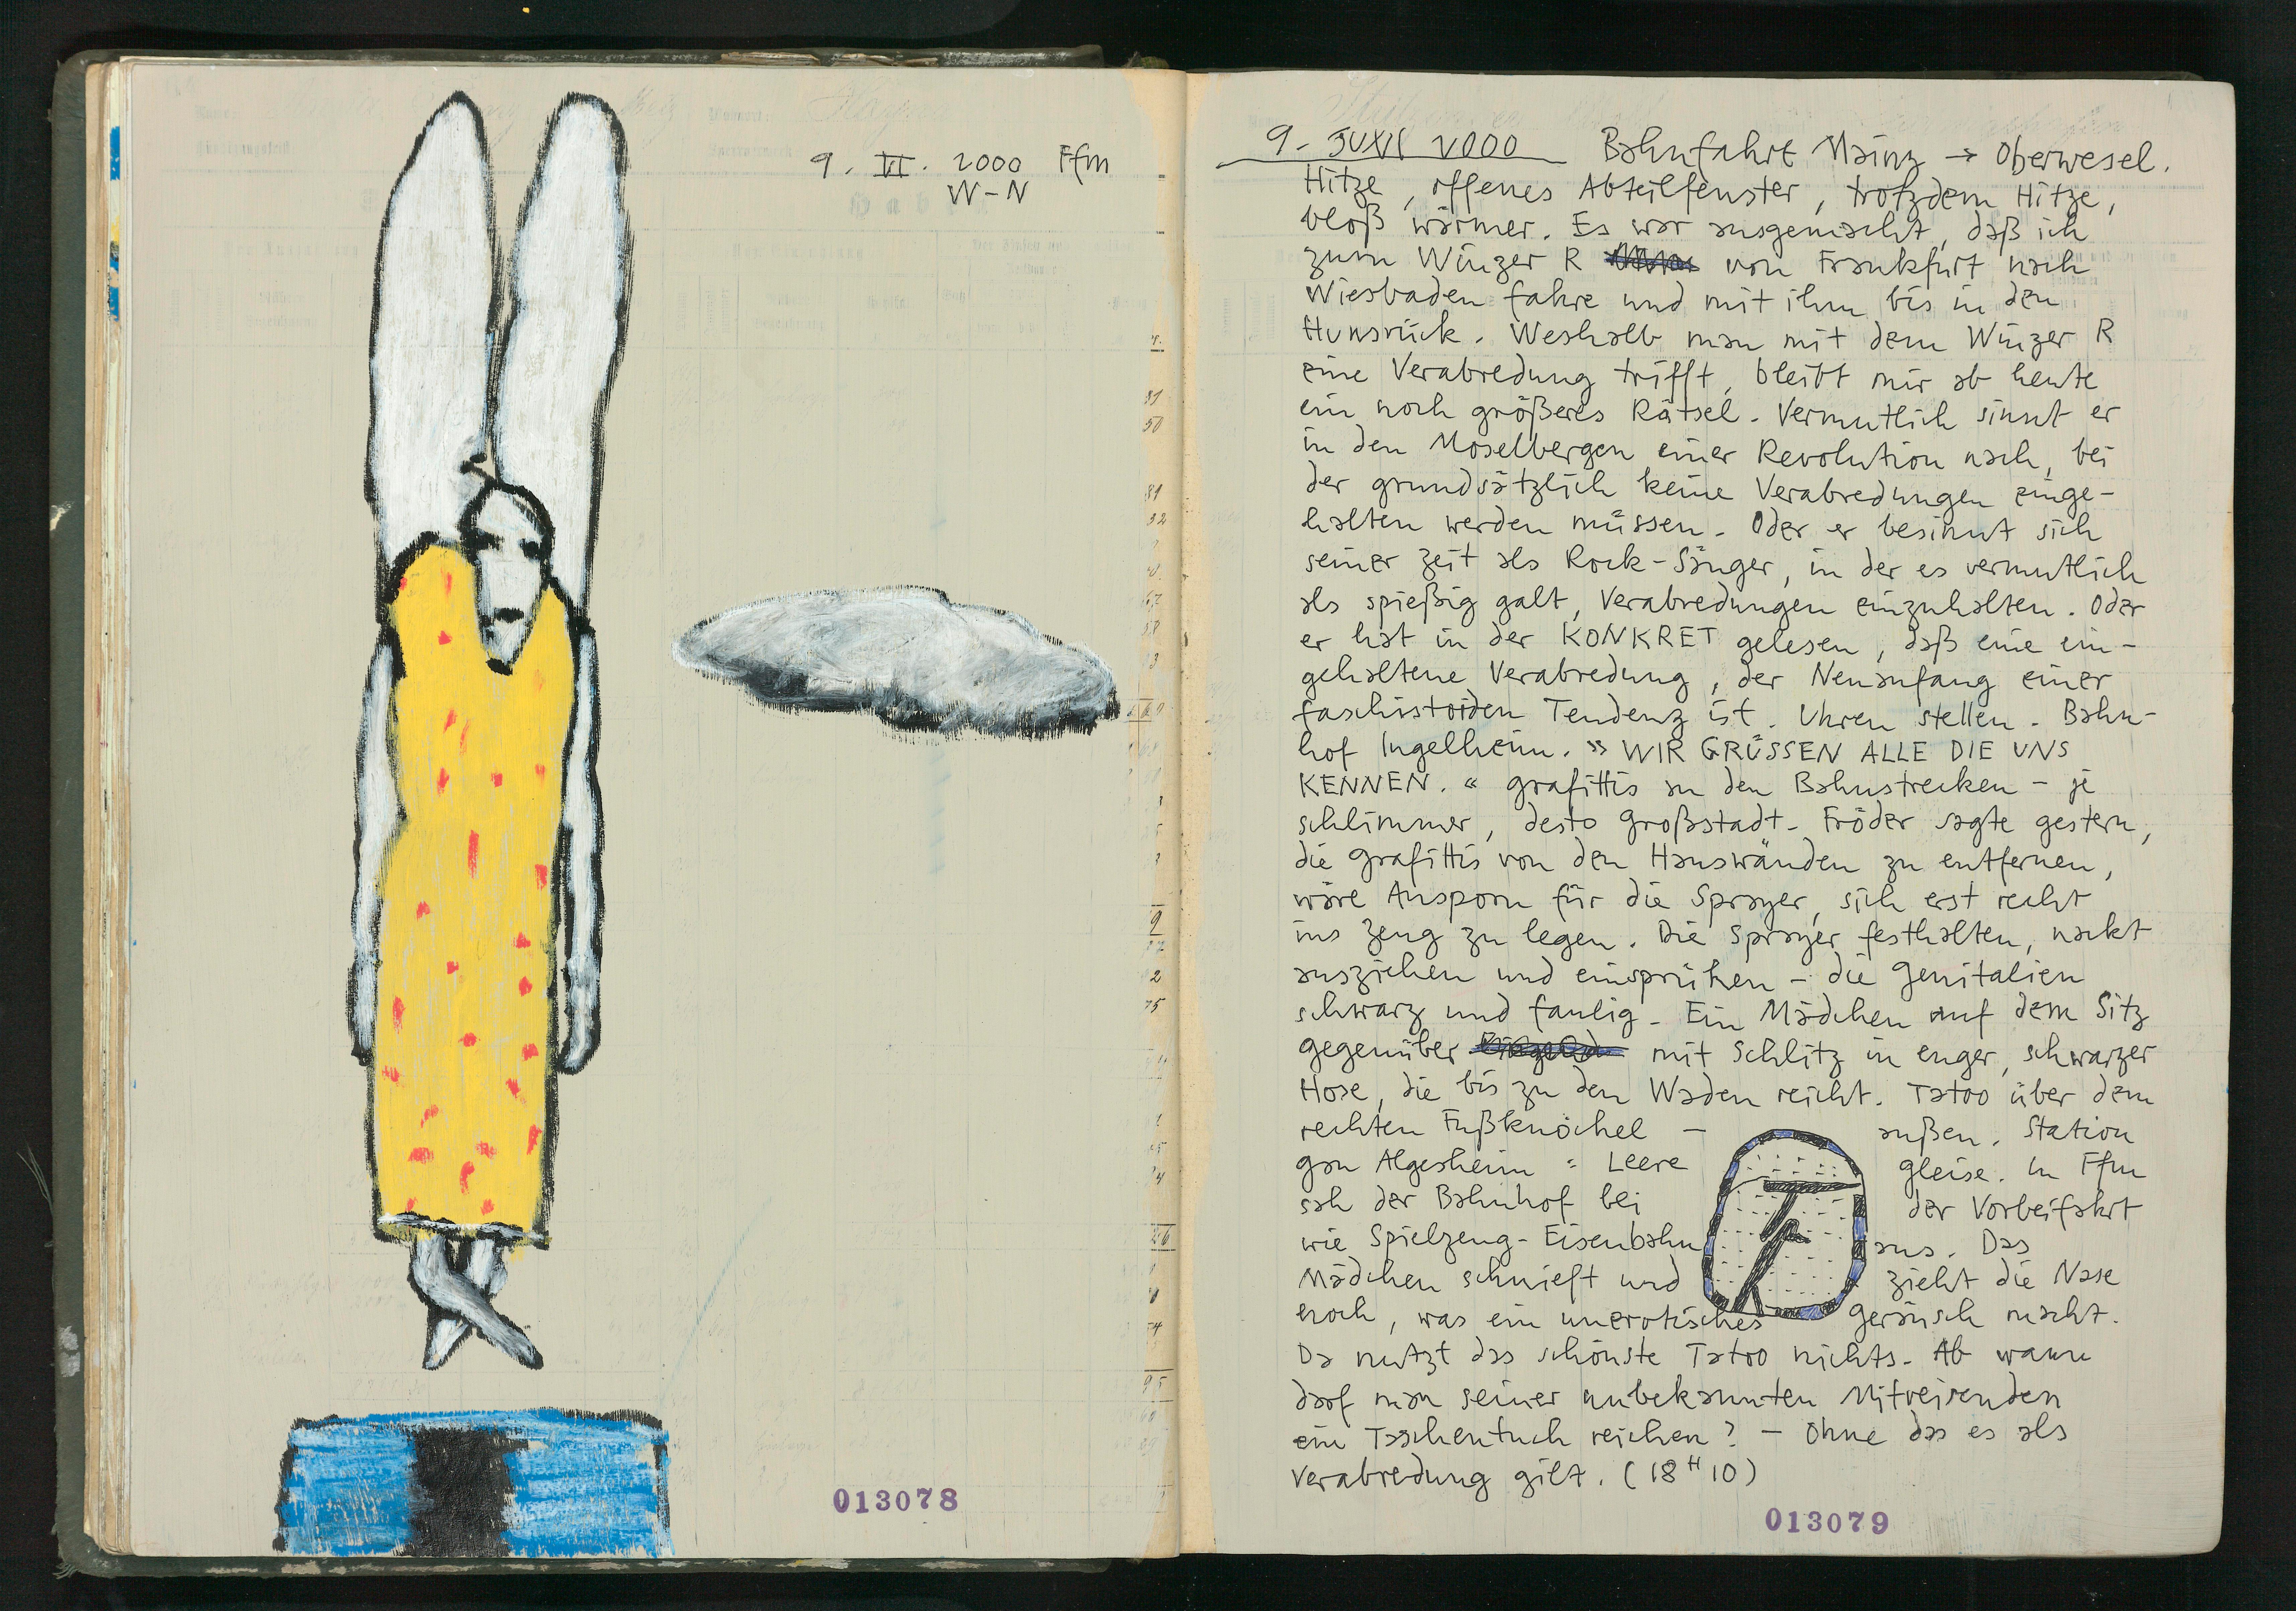 9. VI. 2000 Ffm
W-N
013078
9. JUNI 2000 Bahnfahrt Mainz → Oberwesel.
Hitze, offenes Abteilfenster, trotzdem Hitze,
bloß wärmer. Es war ausgemacht, daß ich
zum Winzer R von Frankfurt nach
Wiesbaden fahre und mit ihm bis in den
Hunsrück. Weshalb man mit dem Winzer R
eine Verabredung trifft, bleibt mir ab heute
ein noch größeres Rätsel. Vermutlich sinnt er
in den Moselbergen einer Revolution nach, bei
der grundsätzlich keine Verabredungen einge-
halten werden müssen. Oder er besinnt sich
seiner Zeit als Rock-Sänger, in der es vermutlich
als spießig galt, Verabredungen einzuhalten. Oder
er hat in der KONKRET gelesen, daß eine ein-
gehaltene Verabredung, der Neuanfang einer
faschistoiden Tendenz ist. Uhren stellen. Bahn-
hof Ingelheim. » WIR GRÜSSEN ALLE DIE UNS
KENNEN. « grafittis an den Bahnstrecken - je
schlimmer, desto Großstadt. Fröder sagte gestern,
die grafittis von den Hauswänden zu entfernen,
wäre Ansporn für die Sprayer, sich erst recht
ins Zeug zu legen. Die Sprayer festhalten, nackt
ausziehen und einsprühen - die Genitalien
schwarz und faulig. Ein Mädchen auf dem Sitz
gegenüber mit Schlitz in enger, schwarzer
Hose, die bis zu den Waden reicht. Tatoo über dem
rechten Fußknöchel - außen. Station
Gau Algesheim = Leere Gleise. In Ffm
sah der Bahnhof bei der Vorbeifahrt
wie Spielzeug-Eisenbahn aus. Das
Mädchen schnieft und zieht die Nase
hoch, was ein unerotisches Geräusch macht.
Da nutzt das schönste Tatoo nichts. Ab wann
darf man seiner unbekannten Mitreisenden
ein Taschentuch reichen? - Ohne das es als
Verabredung gilt. (18 H 10)
013079